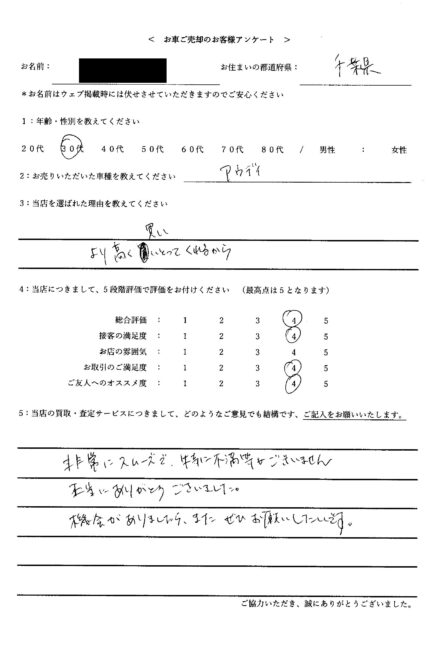 < お車ご売却のお客様アンケート >
お名前： お住まいの都道府県： 千葉県
*お名前はウェブ掲載時には伏せさせていただきますのでご安心ください
1：年齢・性別を教えてください
20代 30代 40代 50代 60代 70代 80代 / 男性 : 女性
2：お売りいただいた車種を教えてください アウディ
3：当店を選ばれた理由を教えてください
買い
より高く いとってくれるから
4：当店につきまして、5段階評価で評価をお付けください （最高点は5となります）
総合評価 : 1 2 3 4 5
接客の満足度 : 1 2 3 4 5
お店の雰囲気 : 1 2 3 4 5
お取引のご満足度 : 1 2 3 4 5
ご友人へのオススメ度 : 1 2 3 4 5
5：当店の買取・査定サービスにつきまして、どのようなご意見でも結構です、ご記入をお願いいたします。
非常にスムーズで、特に不満等もございません
本当にありがとうございました。
機会がありましたら、また ぜひ お願いしたいです。
ご協力いただき、誠にありがとうございました。